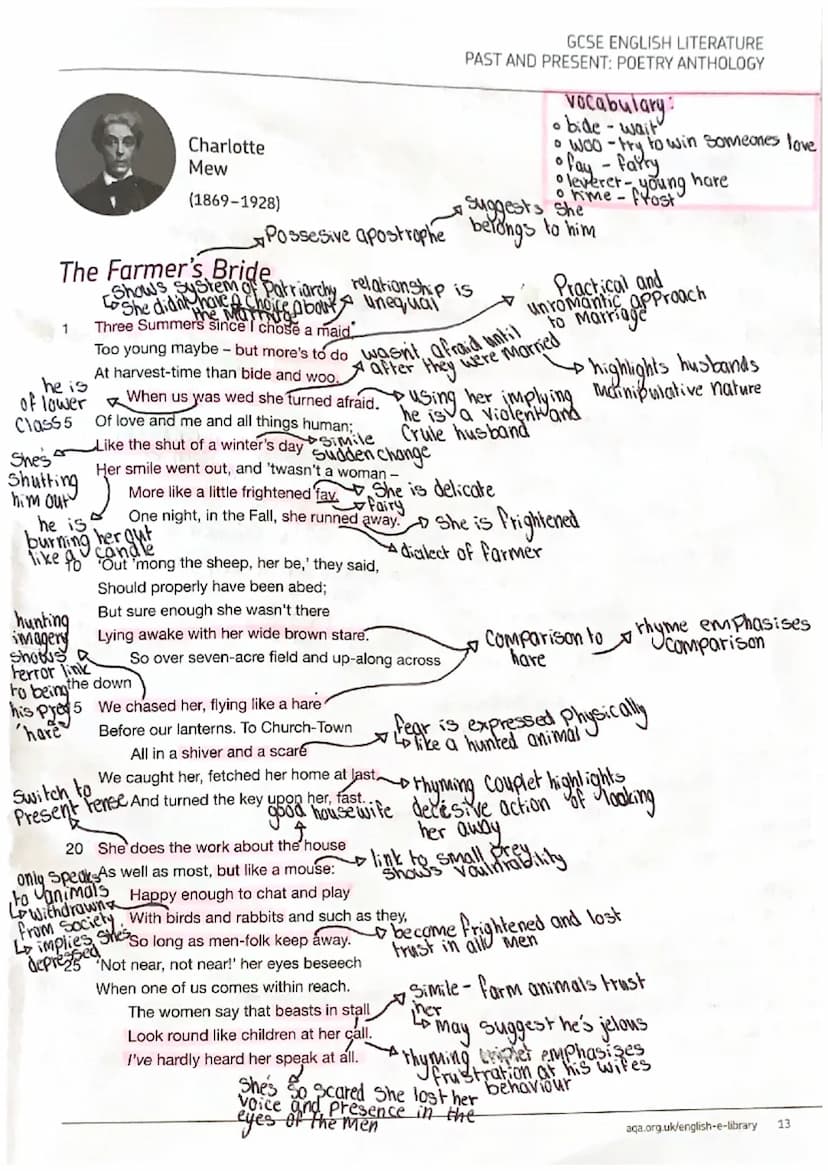 GCSE ENGLISH LITERATURE
PAST AND PRESENT: POETRY ANTHOLOGY
vocabulary:
• bide - wait
• woo - try to win someones love
• fay - fairy
• leveret - young hare
• rime - frost
Charlotte
Mew
(1869–1928)
Possesive apostrophe
suggests she
belongs to him
The Farmer's Bride
Shows system of Patriarchy
↳ She didn't have a choice about
the marriage
relationship is
unequal
Practical and
unromantic approach
to Marriage
1 Three Summers since I chose a maid,
Too young maybe – but more's to do
wasn't afraid until
after they were married
At harvest-time than bide and woo.
highlights husbands
manipulative nature
he is
of lower
class
When us was wed she turned afraid.
using her implying
he is a violent and
crule husband
5 Of love and me and all things human;
Like the shut of a winter's day
simile
sudden change
She's
shutting
him out
Her smile went out, and 'twasn't a woman –
More like a little frightened fay.
She is delicate
fairy
One night, in the Fall, she runned away.
She is frightened
dialect of farmer
he is
burning her out
like a candle
10 'Out 'mong the sheep, her be,' they said,
Should properly have been abed;
But sure enough she wasn't there
Lying awake with her wide brown stare.
So over seven-acre field and up-along across
the down
hunting
imagery
shows
terror link
to being
his prey
'hare'
Comparison to
hare
rhyme emphasises
comparison
15 We chased her, flying like a hare
Before our lanterns. To Church-Town
All in a shiver and a scare
fear is expressed physically
↳ like a hunted animal
We caught her, fetched her home at last
And turned the key upon her, fast.
rhyming couplet highlights
decesive action of looking
her away
Switch to
Present tense
good housewife
20 She does the work about the house
As well as most, but like a mouse:
link to small prey
shows
Happy enough to chat and play
With birds and rabbits and such as they,
So long as men-folk keep away.
only speaks
to animals
↳ withdrawn
from society
↳ implies she's
depressed
become frightened and lost
trust in all men
25 'Not near, not near!' her eyes beseech
When one of us comes within reach.
The women say that beasts in stall
Look round like children at her call.
I've hardly heard her speak at all.
Simile - farm animals trust
her
↳ May suggest he's jelous
rhyming triplet emphasises
frustration at his wifes
behaviour
She's so scared she lost her
voice and presence in the
eyes of the men
aqa.org.uk/english-e-library 13